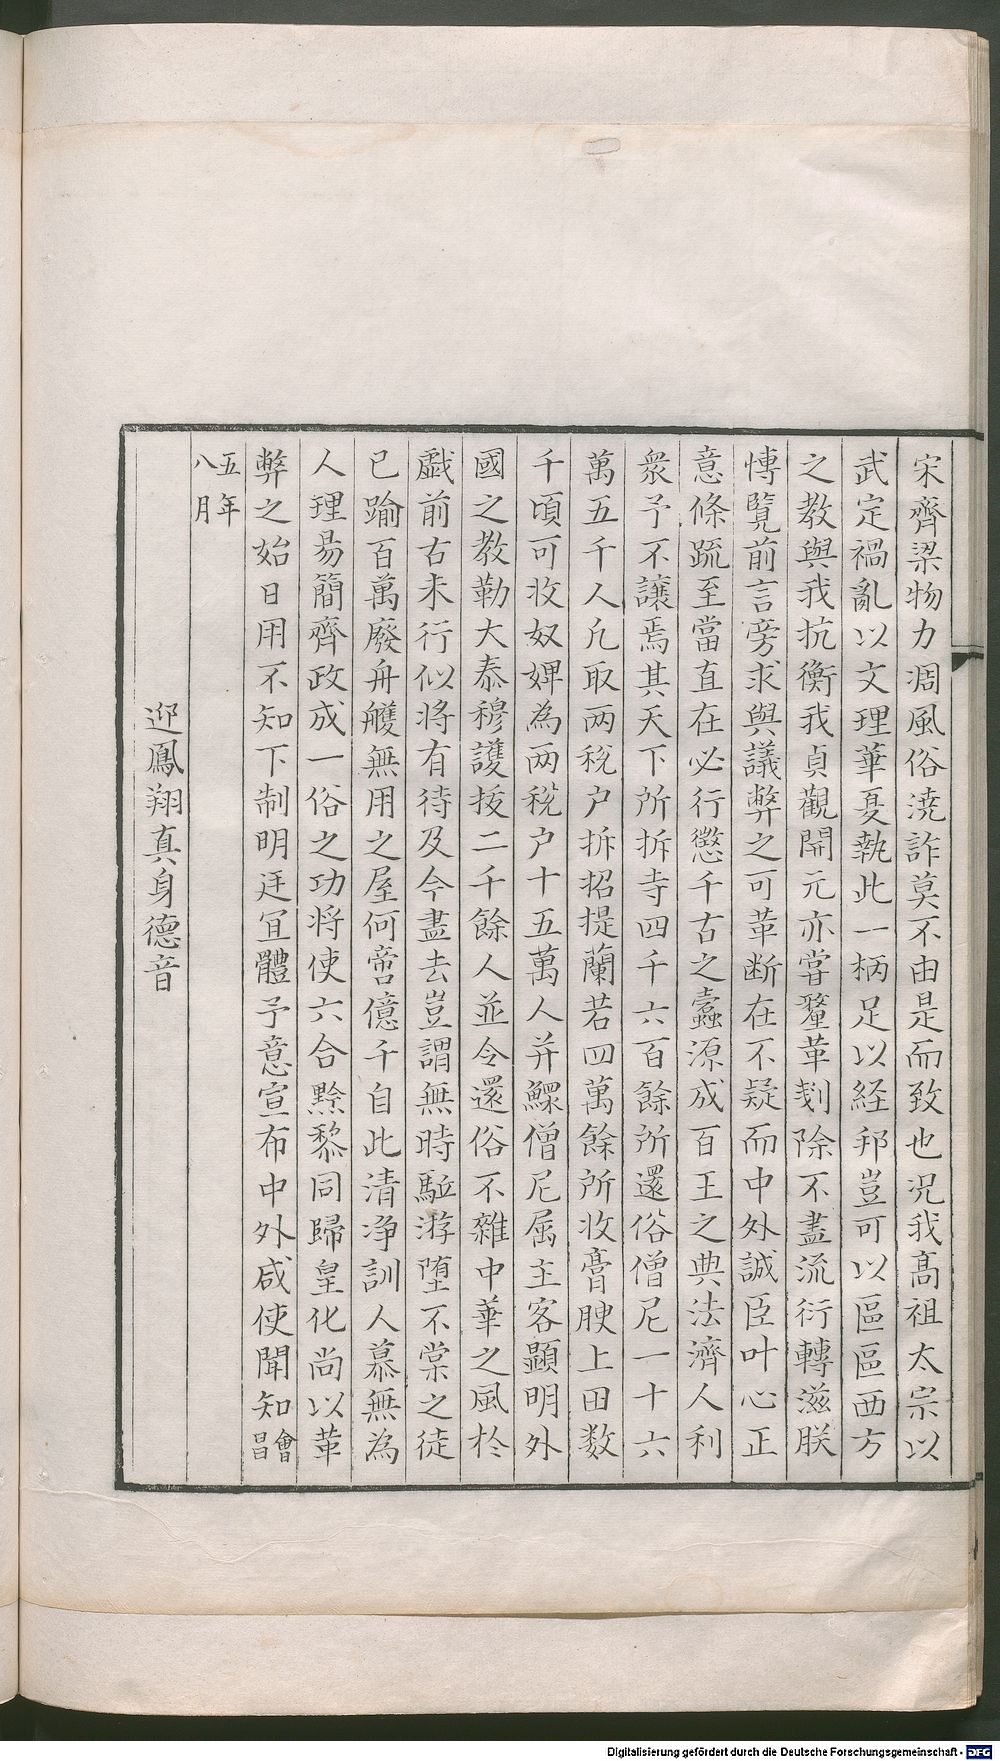 宋齊梁物力凋風俗澆詐莫不由是而致也況我高祖太宗以
武定禍亂以文理華夏執此一柄足以経邦豈可以區區西方
之教與我抗衡我貞觀開元亦嘗釐革剗除不盡流衍轉滋朕
博覽前言旁求輿議弊之可革断在不疑而中外誠臣叶心正
意條䟽至當宜在必行懲千古之蠹源成百王之典法濟人利
衆予不讓焉其天下所拆寺四千六百餘所還俗僧尼一十六
萬五千人凢取两税户拆招提蘭若四萬餘所收膏腴上田数
千頃可收奴婢為两税户十五萬人并鰥僧尼属主客顯明外
國之教勒大泰穆護拔二千餘人並令還俗不雜中華之風於
戯前古未行似將有待及今盡去豈謂無時駈游堕不棠之徒
已踰百萬廢舟艧無用之屋何啻億千自此清净訓人慕無為
人理易簡齊政成一俗之功將使六合黔黎同歸皇化尚以革
弊之始日用不知下制明廷宜體予意宣布中外咸使聞知會昌
五年八月
迎鳳翔真身德音
Digitalisierung gefördert durch die Deutsche Forschungsgemeinschaft - DFG